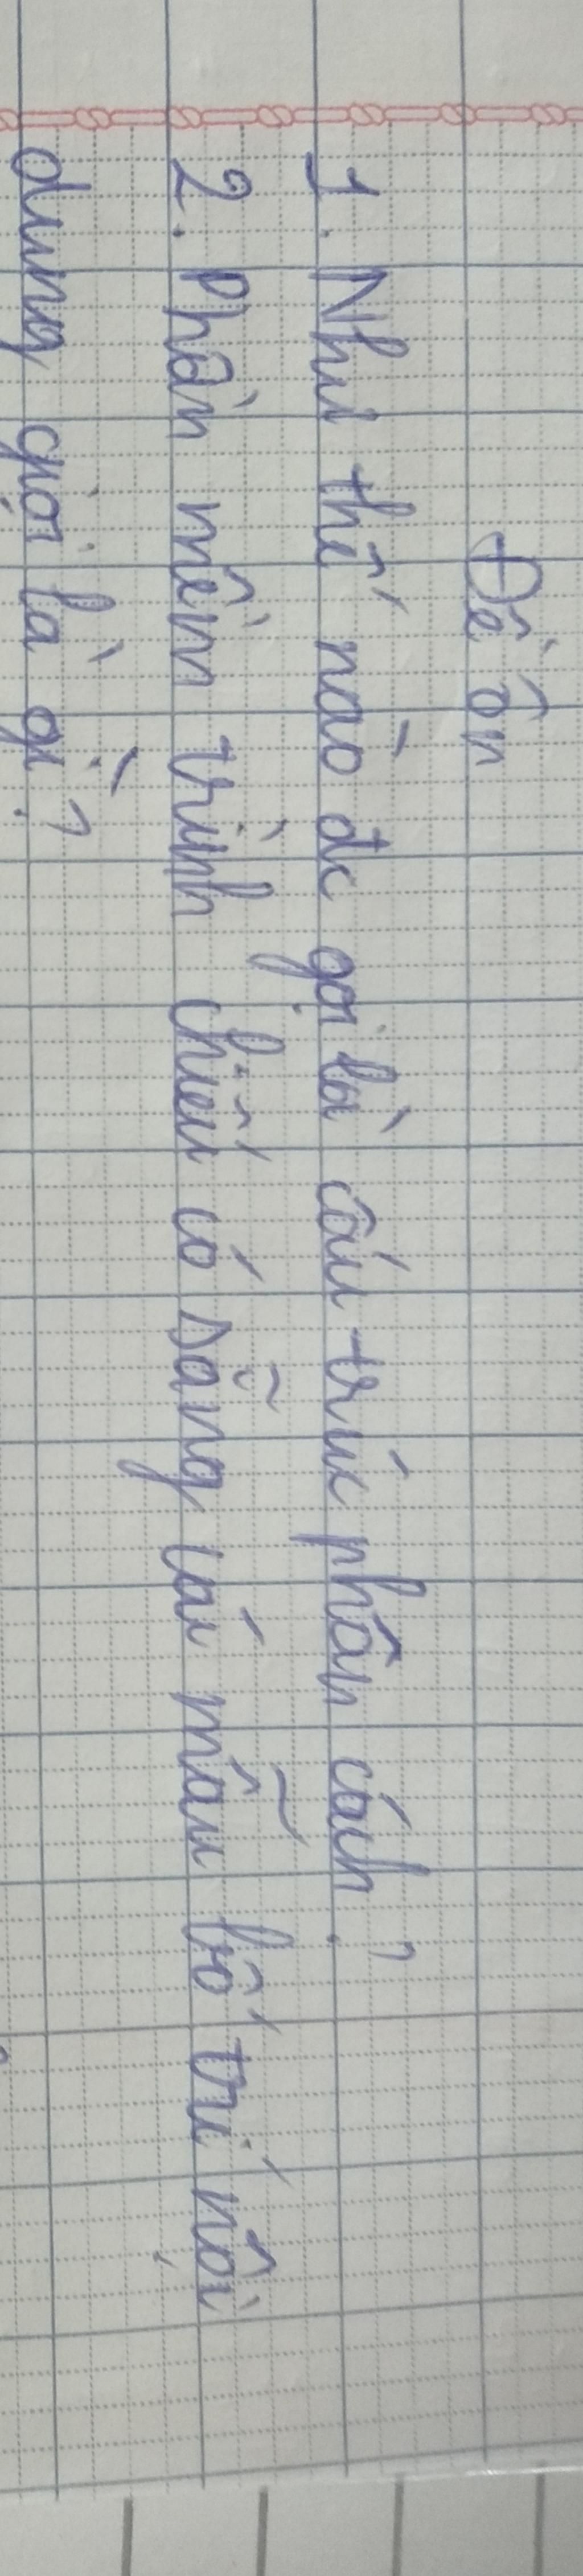 Đề ôn
1. Như thế nào đc gọi là cấu trúc phân cách?
2. Phần mềm trình chiếu có sẵng cái mẫu bố trí nội
dung gọi là gì?